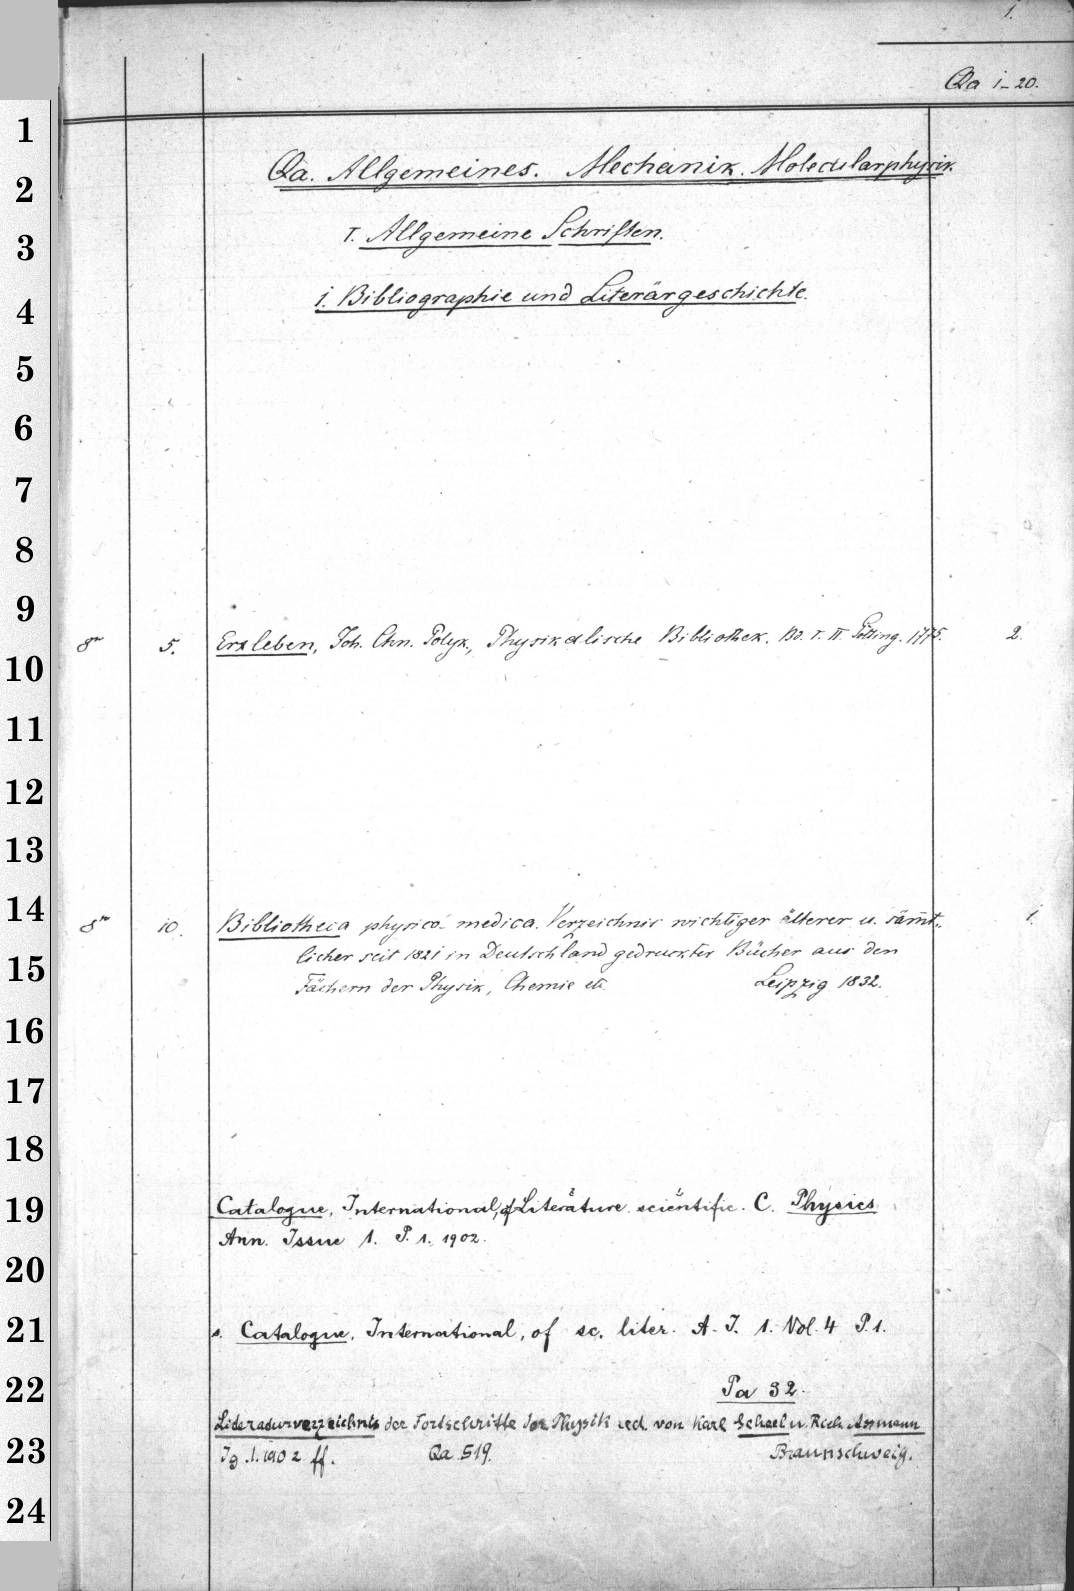 1.
Qa 1-20.
Qa. Allgemeines. Mechanik. Molecularphysik.
I. Allgemeine Schriften.
1. Bibliographie und Literärgeschichte.
8° 5. Erxleben, Joh. Chn. Polyk., Physikalische Bibliothek. Bd. I. II. Götting. 1775. 2.
8° 10. Bibliotheca physico-medica. Verzeichnis wichtiger älterer u. sämt- 1.
licher seit 1821 in Deutschland gedruckter Bücher aus den
Fächern der Physik, Chemie etc. Leipzig 1832.
Catalogue, International, of Literature scientific. C. Physics
Ann. Issue 1. P. 1. 1902.
s. Catalogue, International, of sc. liter. A. I. 1. Vol. 4 P. 1.
Pa 32.
Literaturverzeichnis der Fortschritte der Physik red. von Karl Scheel u. Rich. Assmann
Jg. 1. 1902 ff. Qa 519. Braunschweig.
1
2
3
4
5
6
7
8
9
10
11
12
13
14
15
16
17
18
19
20
21
22
23
24